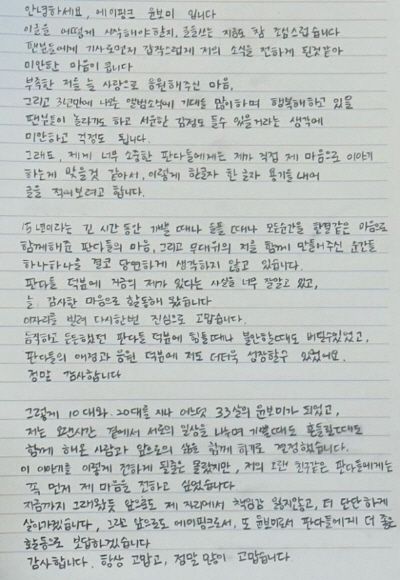 안녕하세요, 에이핑크 윤보미 입니다
이글을 어떻게 시작해야할지, 글을쓰는 지금도 참 조심스럽습니다
팬분들에게 기사로먼저 갑작스럽게 저의 소식을 전하게 된것같아
미안한 마음이 큽니다
부족한 저를 늘 사랑으로 응원해주신 마음,
그리고 3년만에 나올 앨범소식에 기대를 많이하며 행복해하고 있을
팬분들이 놀라기도 하고 서운한 감정도 들수 있을거라는 생각에
미안하고 걱정도 됩니다.
그래도, 제게 너무 소중한 판다들에게는 제가 직접 제 마음으로 이야기
하는게 맞을것 같아서, 이렇게 한글자 한 글자 용기를 내어
글을 적어보려고 합니다.
15년이라는 긴 시간 동안 기쁠 때나 슬플 때나 모든순간을 한결같은 마음으로
함께해준 판다들의 마음, 그리고 무대위의 저를 함께 만들어주신 순간들
하나하나를 결코 당연하게 생각하지 않고 있습니다.
판다들 덕분에 지금의 제가 있다는 사실을 너무 잘알고 있고,
늘 감사한 마음으로 활동해 왔습니다
이자리를 빌려 다시한번 진심으로 고맙습니다.
듬직하고 든든했던 판다들 덕분에 힘들때나 불안할때도 버틸수있었고,
판다들의 애정과 응원 덕분에 저도 더더욱 성장할수 있었어요.
정말 감사합니다
그렇게 10대와 20대를 지나 어느덧 33살의 윤보미가 되었고,
저는 오랜시간 곁에서 서로의 일상을 나누며 기쁠때도 흔들릴때도
함께 해온 사람과 앞으로의 삶을 함께 하기로 결정했습니다.
이 이야기를 이렇게 전하게 될줄은 몰랐지만, 저의 오랜 친구같은 판다들에게는
꼭 먼저 제 마음을 전하고 싶었습니다
지금까지 그래왔듯 앞으로도 제 자리에서 책임감 잃지않고, 더 단단하게
살아가겠습니다, 그리고 앞으로도 에이핑크로서, 또 윤보미로서 판다들에게 더 좋은
활동으로 보답하겠습니다
감사합니다. 항상 고맙고, 정말 많이 고맙습니다.